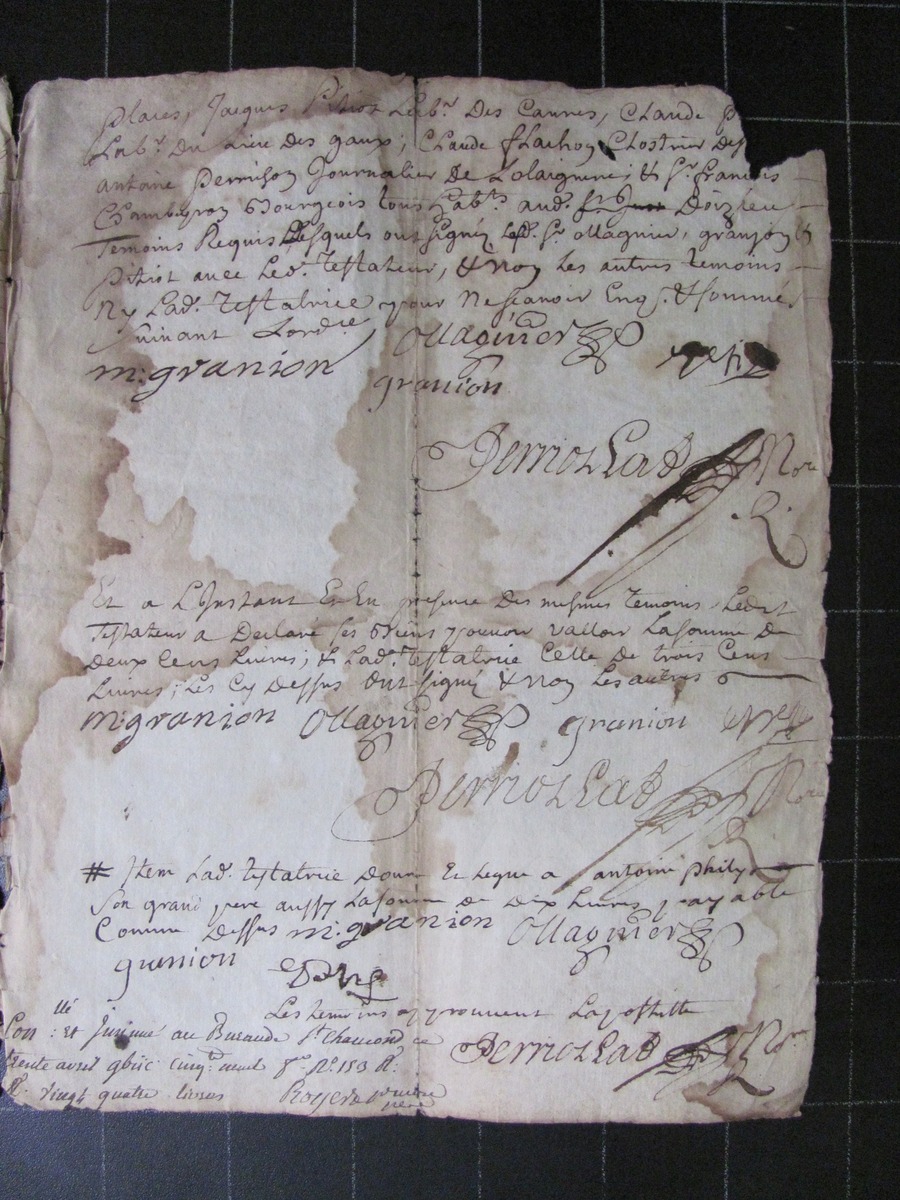 places, Jacques Pitiot Lab.r Des Cannes, Claude
Lab.r Du lieu Des gaux; Claude flachon Clostrier De
antoine perrison Journalier de Lolaigniere; & S.r francois
Chambeyron Bourgeois tous hab.ts aud. Doizieu
Temoins Requis Desquels ont signé led. S.r ollagnier, granjon &
Pitiot avec Led. Testateur, & Non Les autres temoins
Ny Lad. Testatrice pour Ne scavoir Enq. & sommés
suivant Lord.ce
ollagnier
m: granion
granion
Perriolat No.re
R.
Et a L'Instant Et En presence Des mesmes temoins Ledit
Testateur a Declaré ses Biens pouvoir valloir La somme De
Deux Cens Livres; & Lad. Testatrice Celle De trois Cens
Livres; Les Cy Dessus Ont signé & Non Les autres
m: granion ollagnier granion
Perriolat No.re
R
# Item Lad. testatrice Donne Et Legue a antoine philip
Son grand pere aussy La somme de Dix Livres payable
Comme Dessus m: granion ollagnier
granion
Les temoins approuvent La postille
Con: .llé Et Insinué au Bureau de St Chamond ce
trente avril cinq. neuf f.o R.
R. vingt quatre livres
Perriolat No.re
R